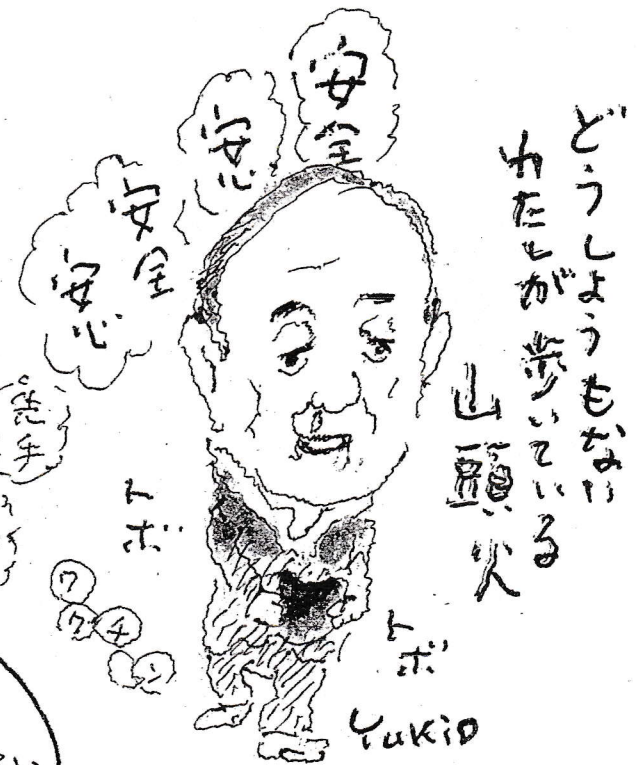 どうしようもない
わたしが歩いている
山頭火
安全
安心
安全
安心
先手
トボ
トボ
ワ
ク
チ
ン
Yukio